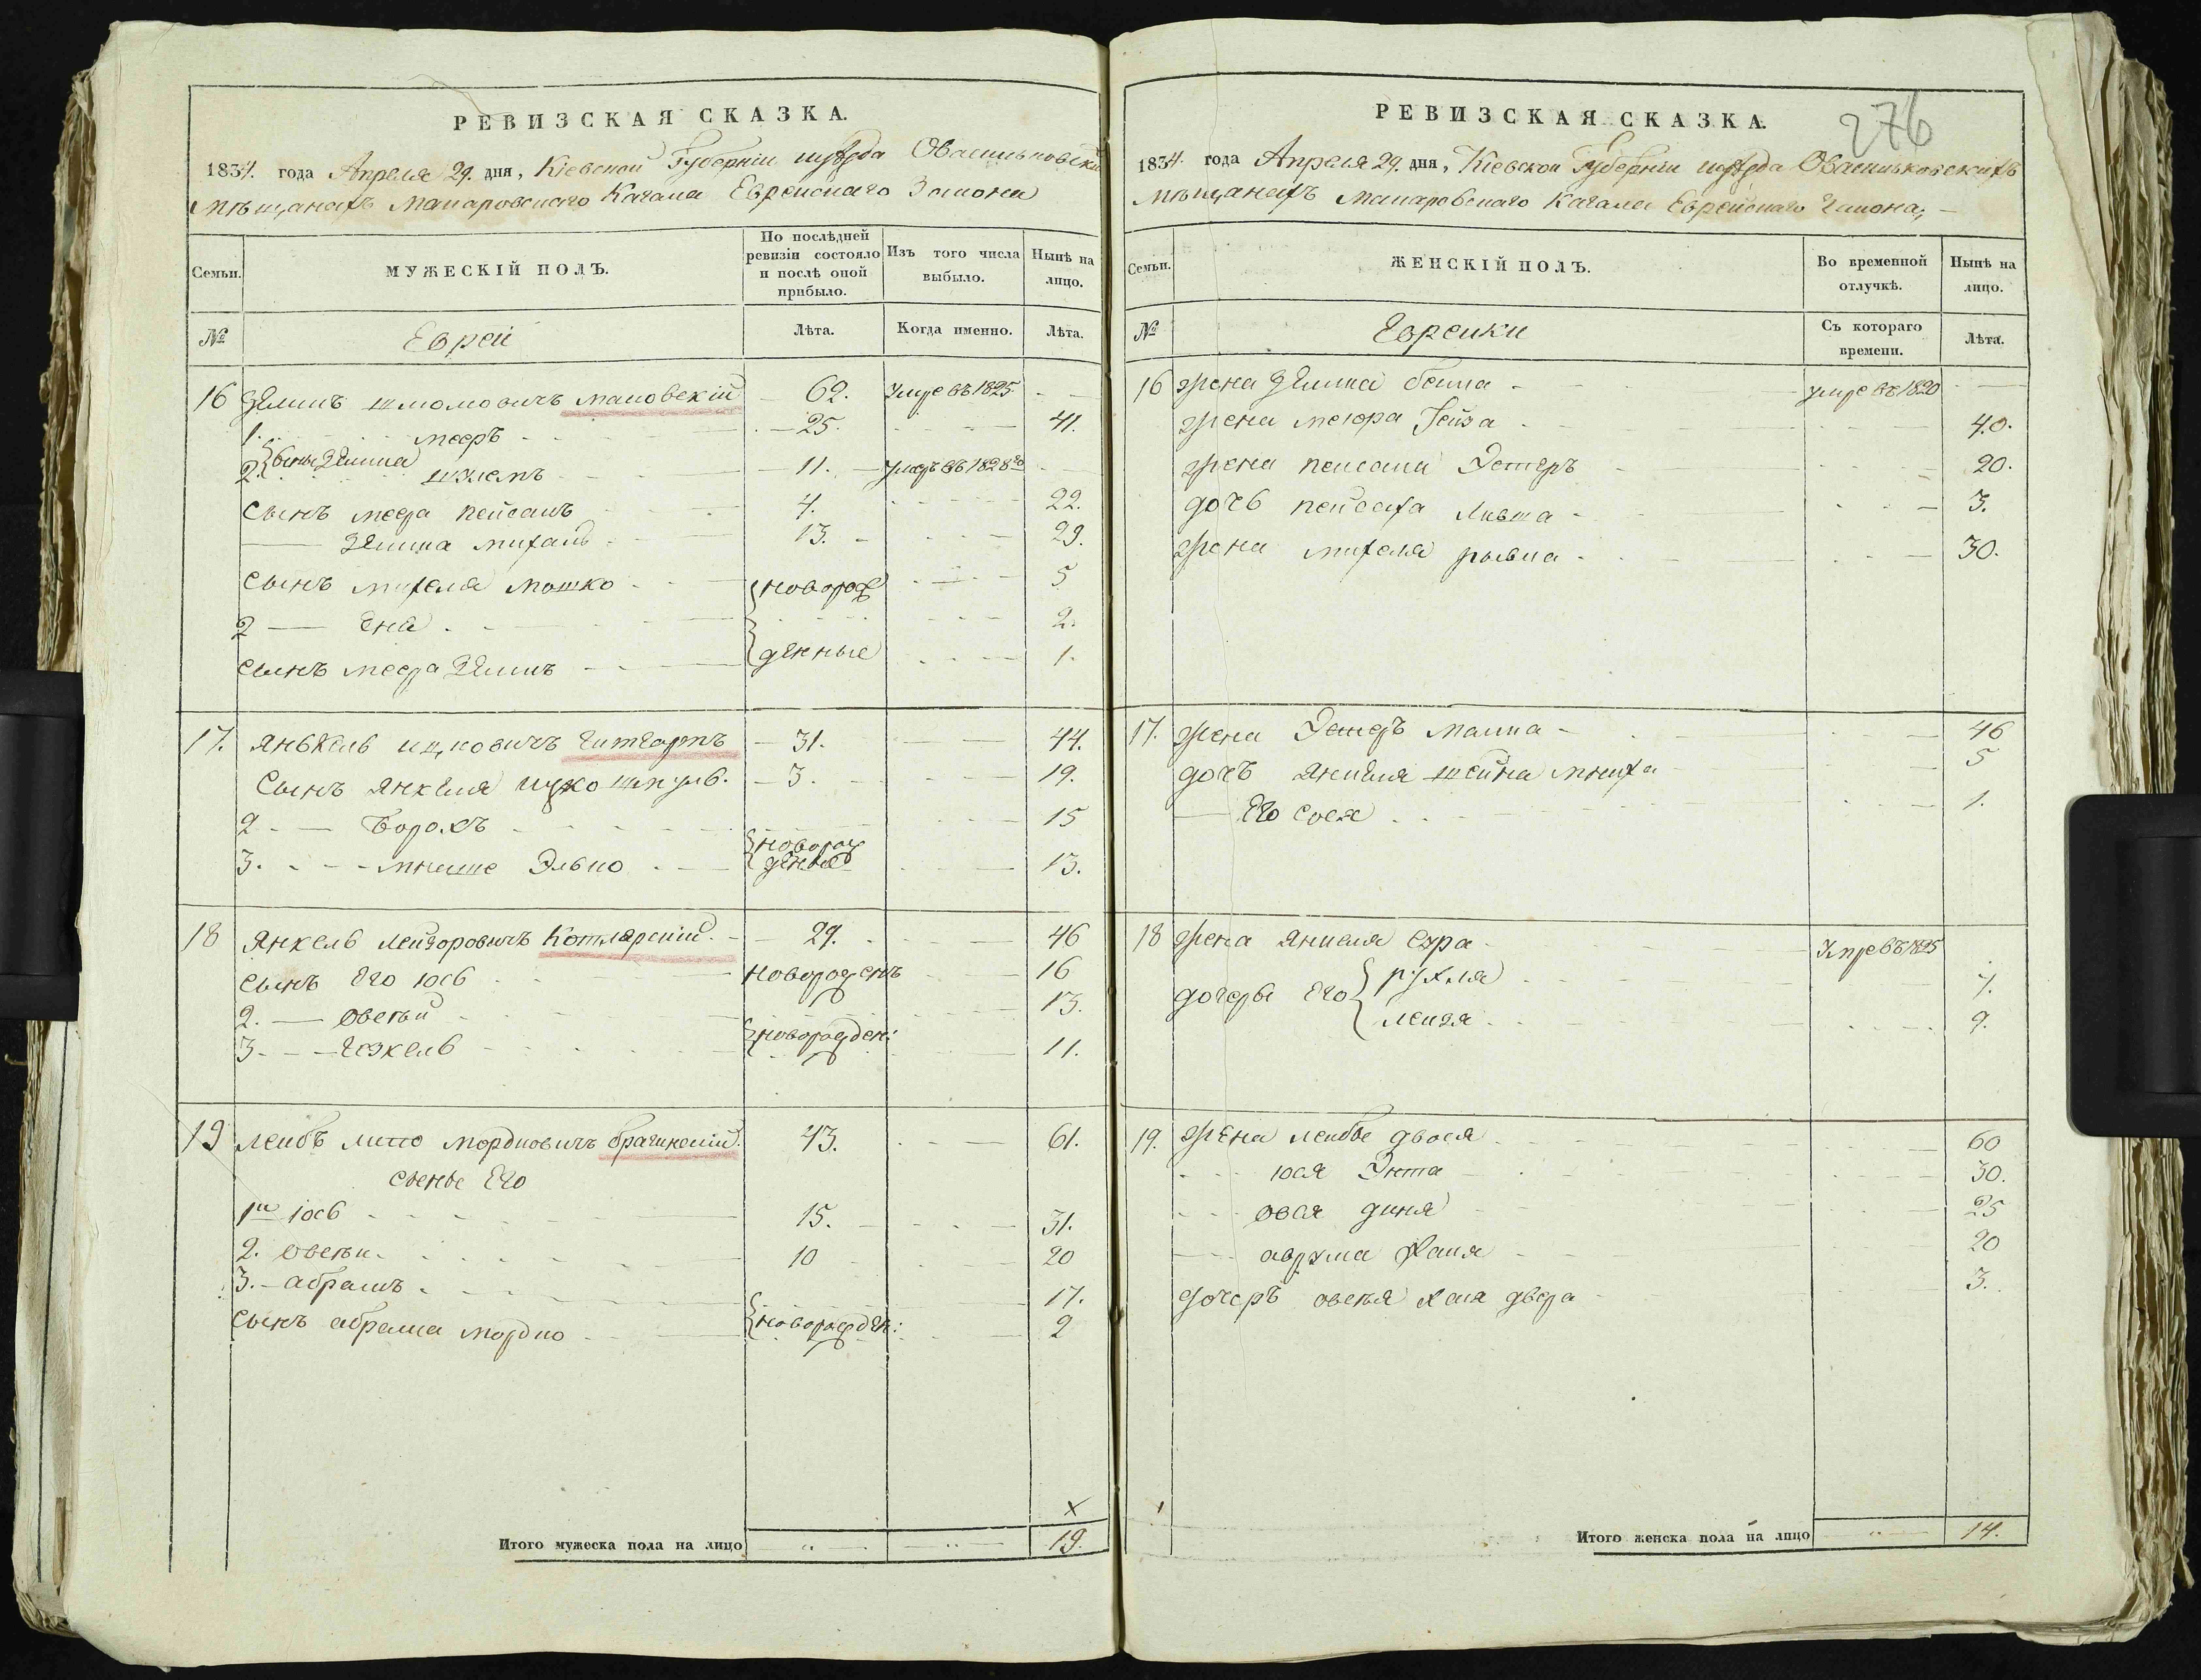 РЕВИЗСКАЯ СКАЗКА.
1834. года Апреля 29. дня, Кіевской Губерніи уезда Овасильковски
Мѣщанахъ Макаровскаго Кагала Еврейскаго Закона
Семьи.
МУЖЕСКІЙ ПОЛЪ.
По послѣдней ревизіи состояло и послѣ оной прибыло.
Изъ того числа выбыло.
Нынѣ на лицо.
№
Еврей
Лѣта.
Когда именно.
Лѣта.
16 Зеликъ шмомовичъ маковскій 62. умре въ 1825
1. мееръ 25. 41.
2. 11. умеръ въ 1828
Сынъ меера пейсахъ 4. 22.
Зелика михаль 13. 29.
Сынъ михеля мошко новорож 5
2 2.
сынъ меера Зеликъ денные 1.
17. Янькель ицковичъ 31. 44.
Сынъ янкеля ицко 3. 19.
2 Борохъ 15
3. Элько новорож денные 13.
18 Янкель лейзоровичъ Котлярскій 29. 46
Сынъ Его іось новорожденъ 16
2. Овсѣй 13.
3 новорожден: 11.
19 Лейбъ мордковичъ брагинскій 43. 61.
сыны Его
1й іось 15. 31.
2. Овсѣи 10 20
3. абрамъ 17.
Сынъ абрама мордко новорожден: 2
х
Итого мужеска пола на лицо 19.
276
РЕВИЗСКАЯ СКАЗКА.
1834. года Апреля 29. дня, Кіевской Губерніи уезда Овасильковскихъ
Мѣщанахъ Макаровскаго Кагала Еврейскаго Закона,
Семьи.
ЖЕНСКІЙ ПОЛЪ.
Во временной отлучкѣ.
Нынѣ на лицо.
№
Еврейки
Съ котораго времени.
Лѣта.
16 жена Зелика бейла умре въ 1820
жена Рейза 40.
жена пейсаха Эстеръ 20.
дочь пейсаха 3.
жена михеля рывка 30.
17. жена Эстеръ малка 46
дочь Янкеля шейна 5
Его сося 1.
18 жена янкеля сура Умре въ 1825
дочеры Его рухля 7.
лейзя 9.
19. жена лейбы двося 60
іося Энта 30.
овся диня 25
аврума хана 20
дочеръ овсѣя хая двера 3.
Итого женска пола на лицо 14.